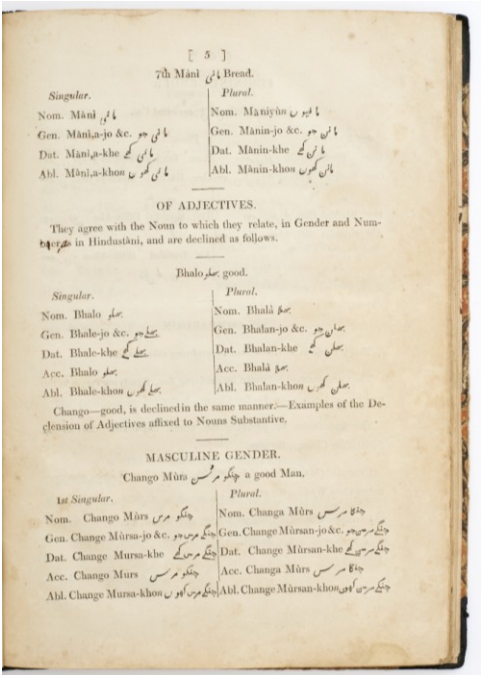 [ 5 ]
7th Mánì مائي Bread.
Singular.
Nom. Mànì مائي
Gen. Mànì,a-jo &c. مائي جو
Dat. Mànì,a-khe مائي کهے
Abl. Mànì,a-khon مائي کهوں
Plural.
Nom. Màniyùn
Gen. Mànin-jo &c. مانن جو
Dat. Mànin-khe مانن کهے
Abl. Mànin-khon مانن کهوں
OF ADJECTIVES.
They agree with the Noun to which they relate, in Gender and Num-
in Hindustàni, and are declined as follows.
Bhalo بهلو good.
Singular.
Nom. Bhalo بهلو
Gen. Bhale-jo &c. بهلے جو
Dat. Bhale-khe بهلے کهے
Acc. Bhalo بهلو
Abl. Bhale-khon بهلے کهوں
Plural.
Nom. Bhalá بهلا
Gen. Bhalan-jo &c. بهلن جو
Dat. Bhalan-khe بهلن کهے
Acc. Bhalá بهلا
Abl. Bhalan-khon بهلن کهوں
Chango—good, is declined in the same manner.—Examples of the De-
clension of Adjectives affixed to Nouns Substantive.
MASCULINE GENDER.
Chango Mùrs چنگو مرس a good Man.
1st Singular.
Nom. Chango Mùrs چنگو مرس
Gen. Change Mùrsa-jo &c. چنگے مرس جو
Dat. Change Mursa-khe چنگے مرس کهے
Acc. Chango Murs چنگو مرس
Abl. Change Mursa-khon چنگے مرس کهوں
Plural.
Nom. Changa Mùrs چنگا مرس
Gen. Change Mùrsan-jo &c. چنگے مرسن جو
Dat. Change Mùrsan-khe چنگے مرسن کهے
Acc. Changa Mùrs چنگا مرس
Abl. Change Mùrsan-khon چنگے مرسن کهوں